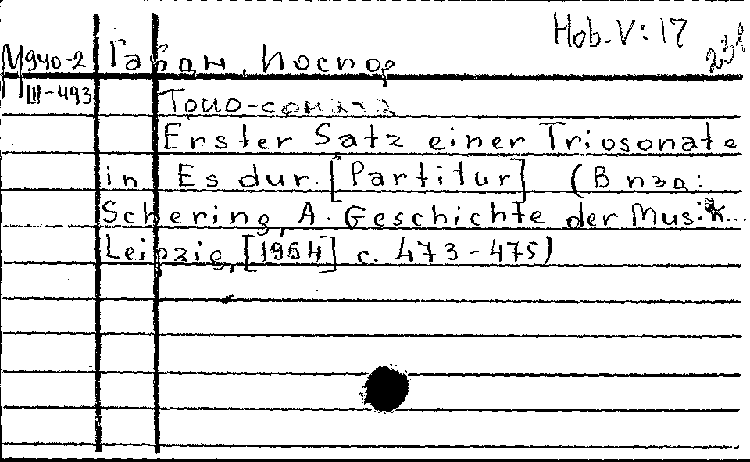 Hob. V: 17
М940-2 Гайдн, Йосиф
Ш-493
Тріо-соната
Erster Satz einer Triosonate
in Es dur. [Partitur] (В изд:
Schering, A. Geschichte der Musik...
Leipzig, [1954] с. 473-475)